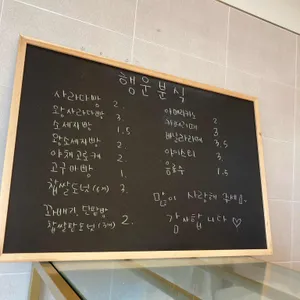 행운분식
사라다빵 2.
왕사라다빵 3.
소세지빵 1.5
왕소세지빵 2.
야채고로케 2.
고구마빵 1.
찹쌀도넛(6개) 3.
꽈배기, 단팥빵
찹쌀팥도넛(3개) 2.
아메리카노 2
카페라떼 3
바닐라라떼 3.5
아이스티 3.
음료수 1.5
많이 사랑해 주세요.
감사합니다 ♡